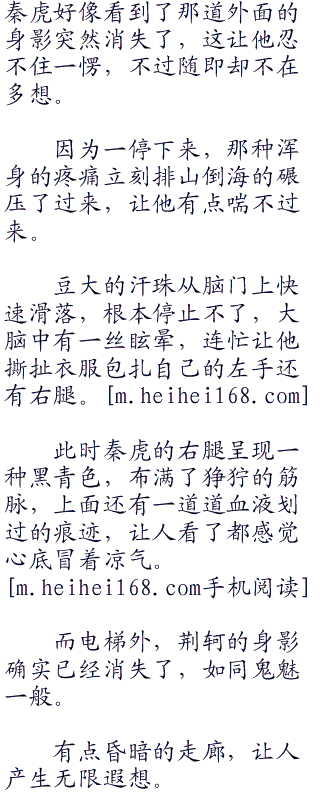 秦虎好像看到了那道外面的
身影突然消失了，这让他忍
不住一愣，不过随即却不在
多想。
因为一停下来，那种浑
身的疼痛立刻排山倒海的碾
压了过来，让他有点喘不过
来。
豆大的汗珠从脑门上快
速滑落，根本停止不了，大
脑中有一丝眩晕，连忙让他
撕扯衣服包扎自己的左手还
有右腿。[m.heihei168.com]
此时秦虎的右腿呈现一
种黑青色，布满了狰狞的筋
脉，上面还有一道道血液划
过的痕迹，让人看了都感觉
心底冒着凉气。
[m.heihei168.com手机阅读]
而电梯外，荆轲的身影
确实已经消失了，如同鬼魅
一般。
有点昏暗的走廊，让人
产生无限遐想。